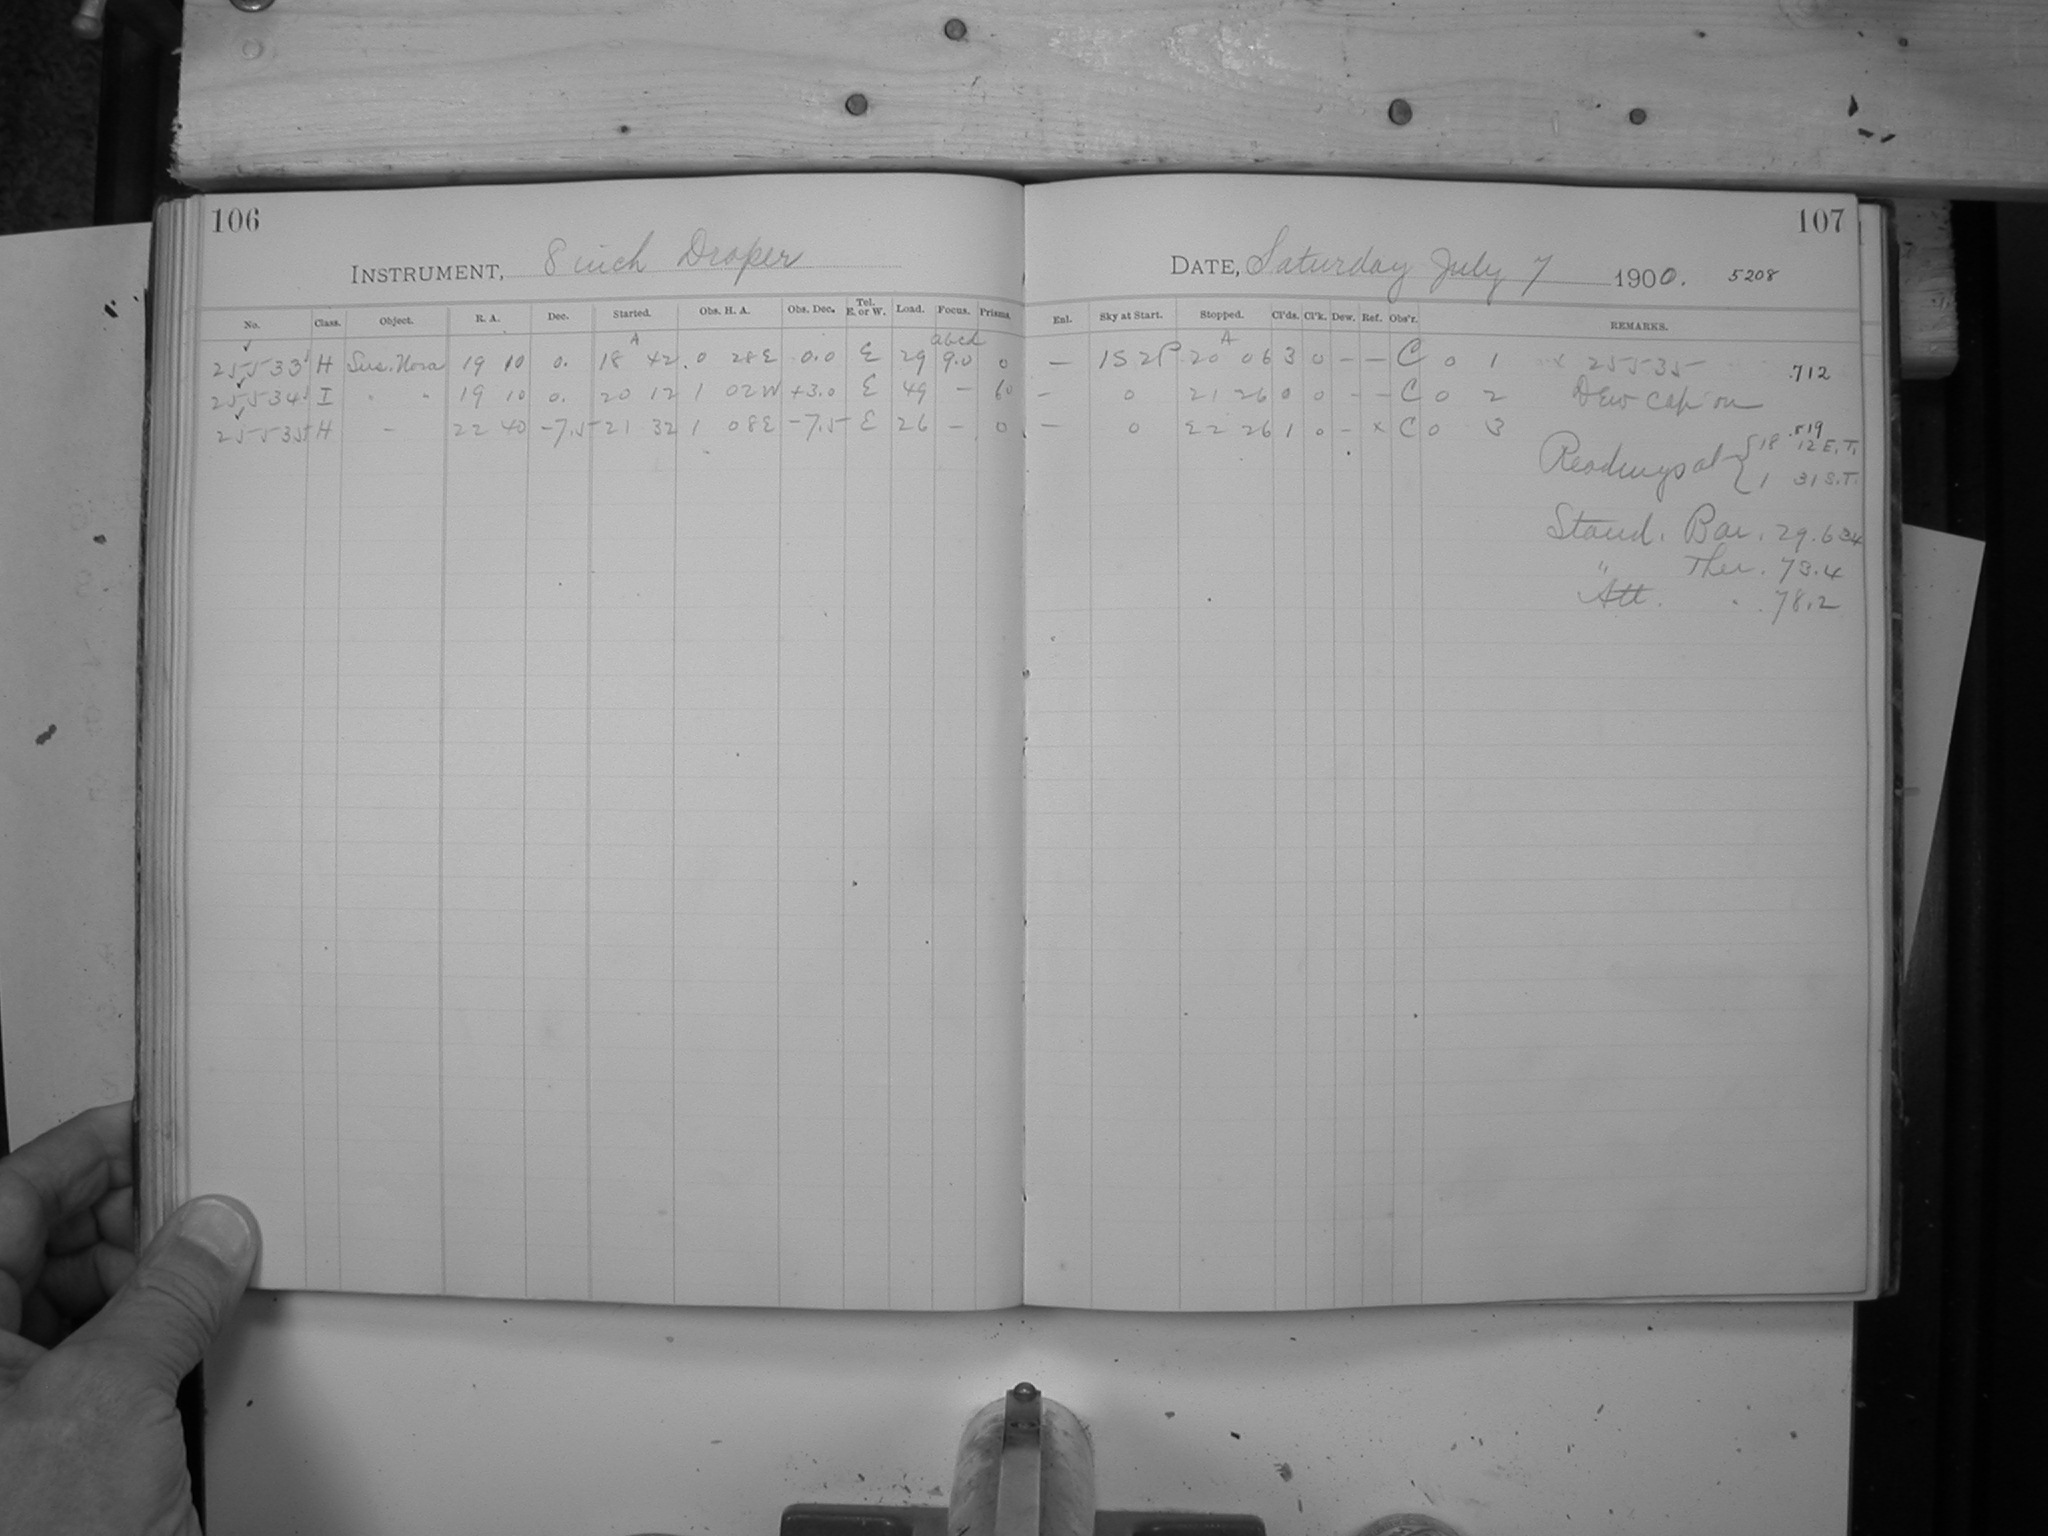 106
INSTRUMENT, 8 inch Draper
No. Class. Object. R. A. Dec. Started. Obs. H. A. Obs. Dec. Tel. E. or W. Load. Focus. Prisms.
A abcd
25533 H Sus. Nova 19 10 0. 18 42 0 28E 0.0 E 29 9.0 0
25534 I " " 19 10 0. 20 12 1 02W +3.0 E 49 – 60
25535 H – 22 40 -7.5 21 32 1 08E -7.5 E 26 – 0
107
DATE, Saturday July 7 1900. 5208
Enl. Sky at Start. Stopped. Cl'ds. Cl'k. Dew. Ref. Obs'r. REMARKS.
A
— 1S 2P 20 06 3 0 – – C 0 1 x 25535 .712
– 0 21 26 0 0 – – C 0 2 Dew cap on
— 0 22 26 1 0 – x C 0 3 .519
Readings at { 18 12 E.T.
1 31 S.T.
Stand. Bar. 29.634
" Ther. 73.4
Att. " 78.2